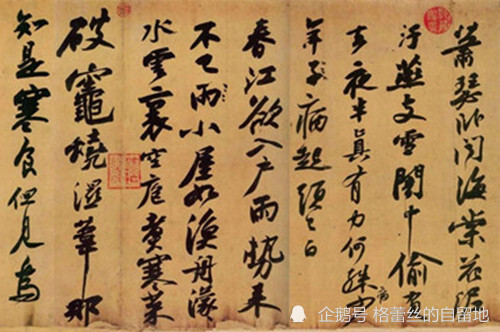 蕭瑟卧聞海棠花泥
汙燕支雪闇中偷負
去夜半真有力何殊少
病
年子病起頭已白
春江欲入户雨勢來
不已雨小屋如漁舟濛
水雲裏空庖煮寒菜
破竈燒濕葦那
知是寒食但見烏
企鹅号 格蕾丝的自留地